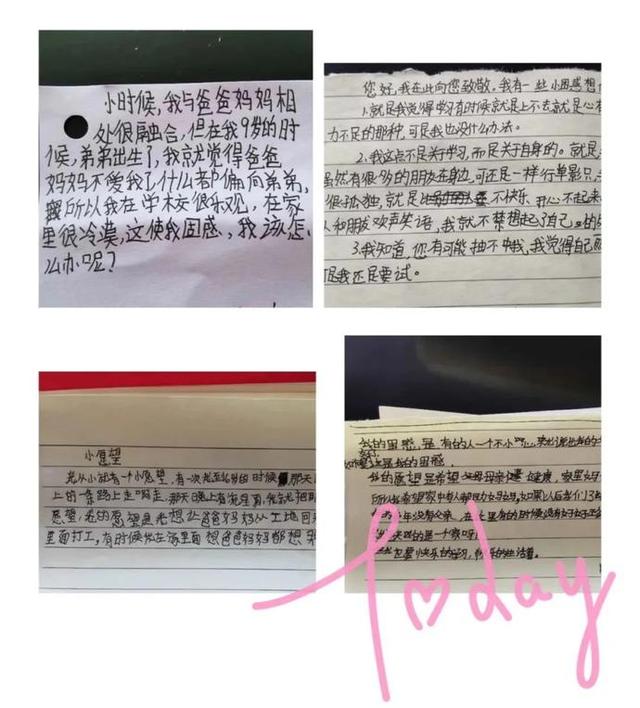 小时候，我与爸爸妈妈相
处很融合，但在我9岁的时
候，弟弟出生了，我就觉得爸爸
妈妈不爱我了什么都偏向弟弟。
所以我在学校很乐观，在家
里很冷漠，这使我困惑，我该怎
么办呢？
您好，我在此向您致敬，我有一些小困惑想
1.就是我觉得学习有时候就是上不去就是心有
力不足的那种，可是我也没什么办法。
2.我这点不是关于学习，而是关于自身的。就是
虽然有很多的朋友在身边，可还是一样行单影只
很孤独，就是 不快乐 开心不起来
人和朋友欢声笑语，我就不禁想起了自己。的
3.我知道，您有可能抽不中我，我觉得自己
但我还是要试。
小愿望
我从小就有一个小愿望，有一次 的时候 那天
上的一条路上走 那天晚上有流星雨，我就把
愿望，我的愿望是我想让爸爸妈妈从工地回
里面打工，有时候我在家里面想爸爸妈妈都想
我的困惑是 有的人一个不小心
是我的困惑
我的愿望是希望 母亲 健康，家里好
所以我希望家中每人都 如果
年没有父亲 有的时候
的是一个家呀
也要快乐的学习，快乐的生活着。
Today